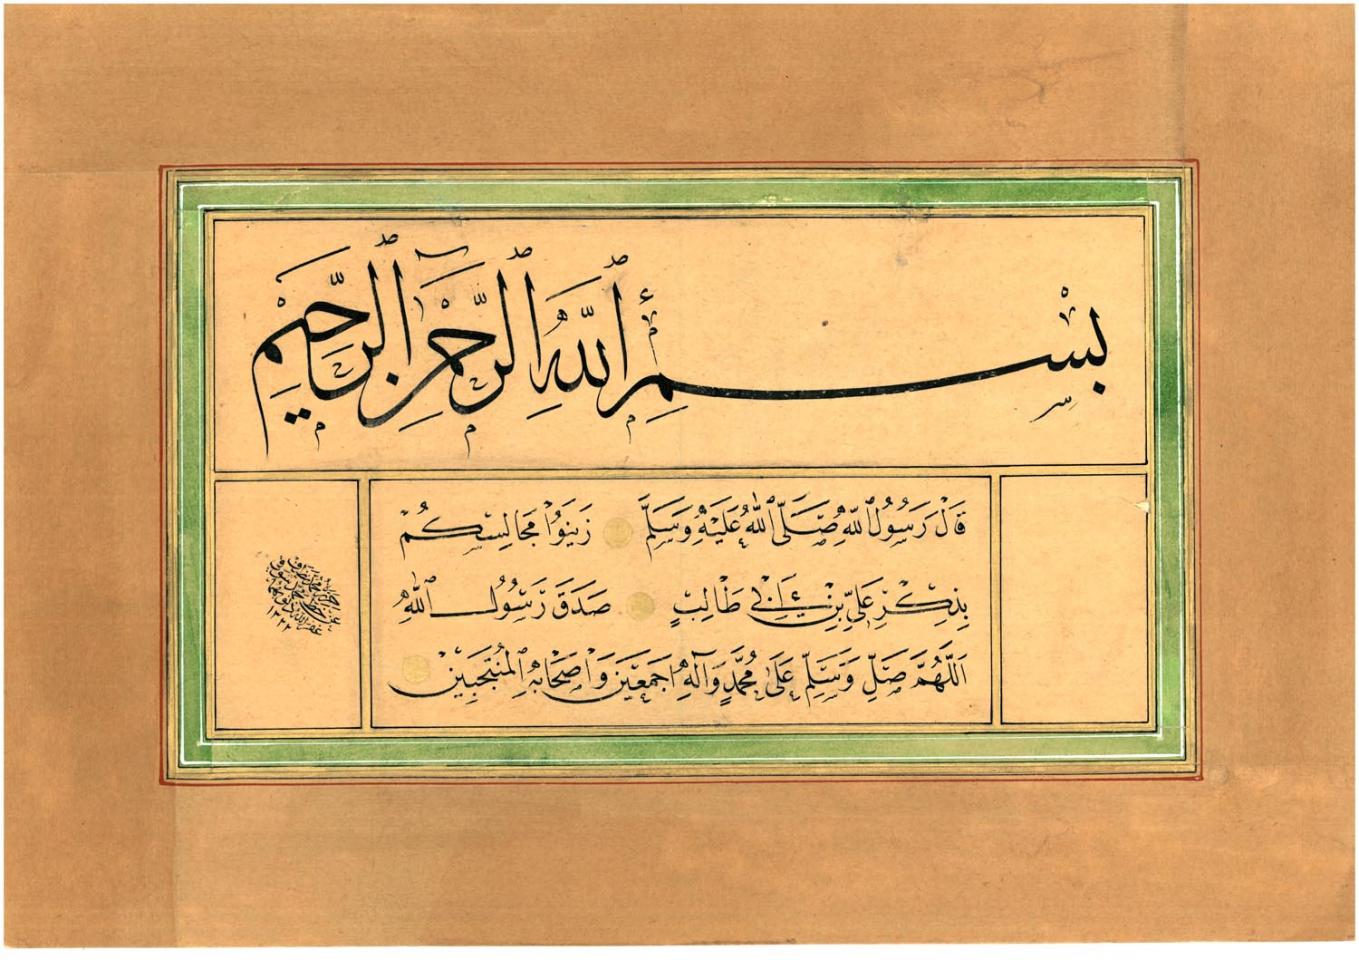 بِسْمِ ٱللَّهِ ٱلرَّحْمٰنِ ٱلرَّحِيمِ
قَالَ رَسُولُ ٱللّٰهِ صَلَّى ٱللّٰهُ عَلَيْهِ وَسَلَّمَ زَيِنَوُا مَجَالِسِكُمْ
بِذِكْرِ عَلِيِّ بْنِ أَبِي طَالِبٍ صَدَقَ رَسُولُ ٱللّٰهِ
اَللَّهُمَّ صَلِّ وَسَلِّمْ عَلَى مُحَمَّدٍ وَآلِهِ اَجمَعْينَ وَاَصْحَابِهِ ٱلمُنْتَجَبِينَ